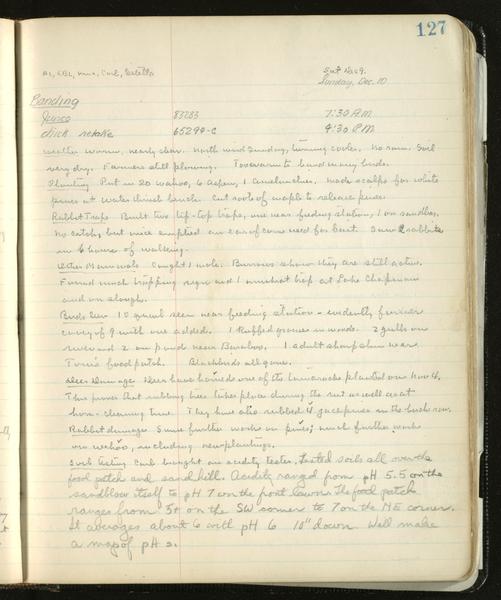 127
AL, EBL, Carl, Estella
Sat. Dec 9.
Sunday, Dec. 10
Banding
Junco 83283 7:30 A.M.
chick retake 65299-C 4:30 P.M.
Weather warm, nearly clear. North wind Sunday, turning cooler. No snow. Soil
very dry. Farmers still plowing. Too warm to band many birds.
Planting Put in 20 wahoo, 6 aspen, 1 Made scalps for white
pines at Cut roots of maple to release pines.
Rabbit Traps Built two tip-top traps, one near feeding station, 1 on sandbag.
No catch, but mice emptied an ear of corn used for bait. Saw 2 rabbits
in 6 hours of walking.
Other Mammals Caught 1 mole. Burrows show they are still active.
Found much trapping sign and 1 muskrat trap at Lake Chapman
and on slough.
Birds Seen 10 quail seen near feeding station - evidently former
covey of 9 with one added. 1 Ruffed grouse in woods. 2 gulls on
river and 2 on pond near Baraboo. 1 adult sharpshin near
food patch. Blackbirds all gone.
Deer Damage Deer have horned one of the tamaracks planted on Nov 4.
This proves that rubbing trees takes place during the rut as well as at
horn-cleaning time. They have also rubbed 4 jackpines in the birch row.
Rabbit damage Some further work on pines; much further work
on wahoo, including new plantings.
Soil testing Carl brought an acidity tester. Tested soils all over the
food patch and sand hill. Acidity ranged from pH 5.5 on the
sandblow itself to pH 7 on the front lawn. The food patch
ranges from 5+ on the SW corner to 7 on the NE corner.
It averages about 6 with pH 6 10" down. Will make
a map of pH s.